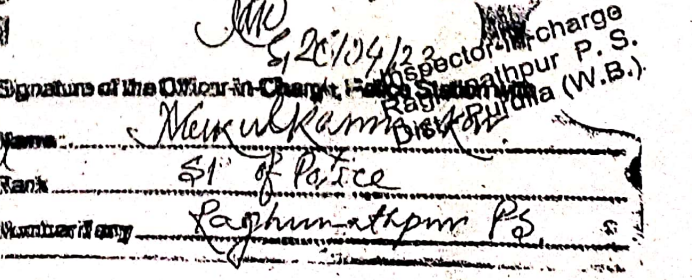 20/04/23
Inspector-in-charge
Raghunathpur P. S.
Dist. Purulia (W.B.)
Signature of the Officer-in-Charge, Police Station with
Name:
Rank SI of Police
Number if any Raghunathpur PS